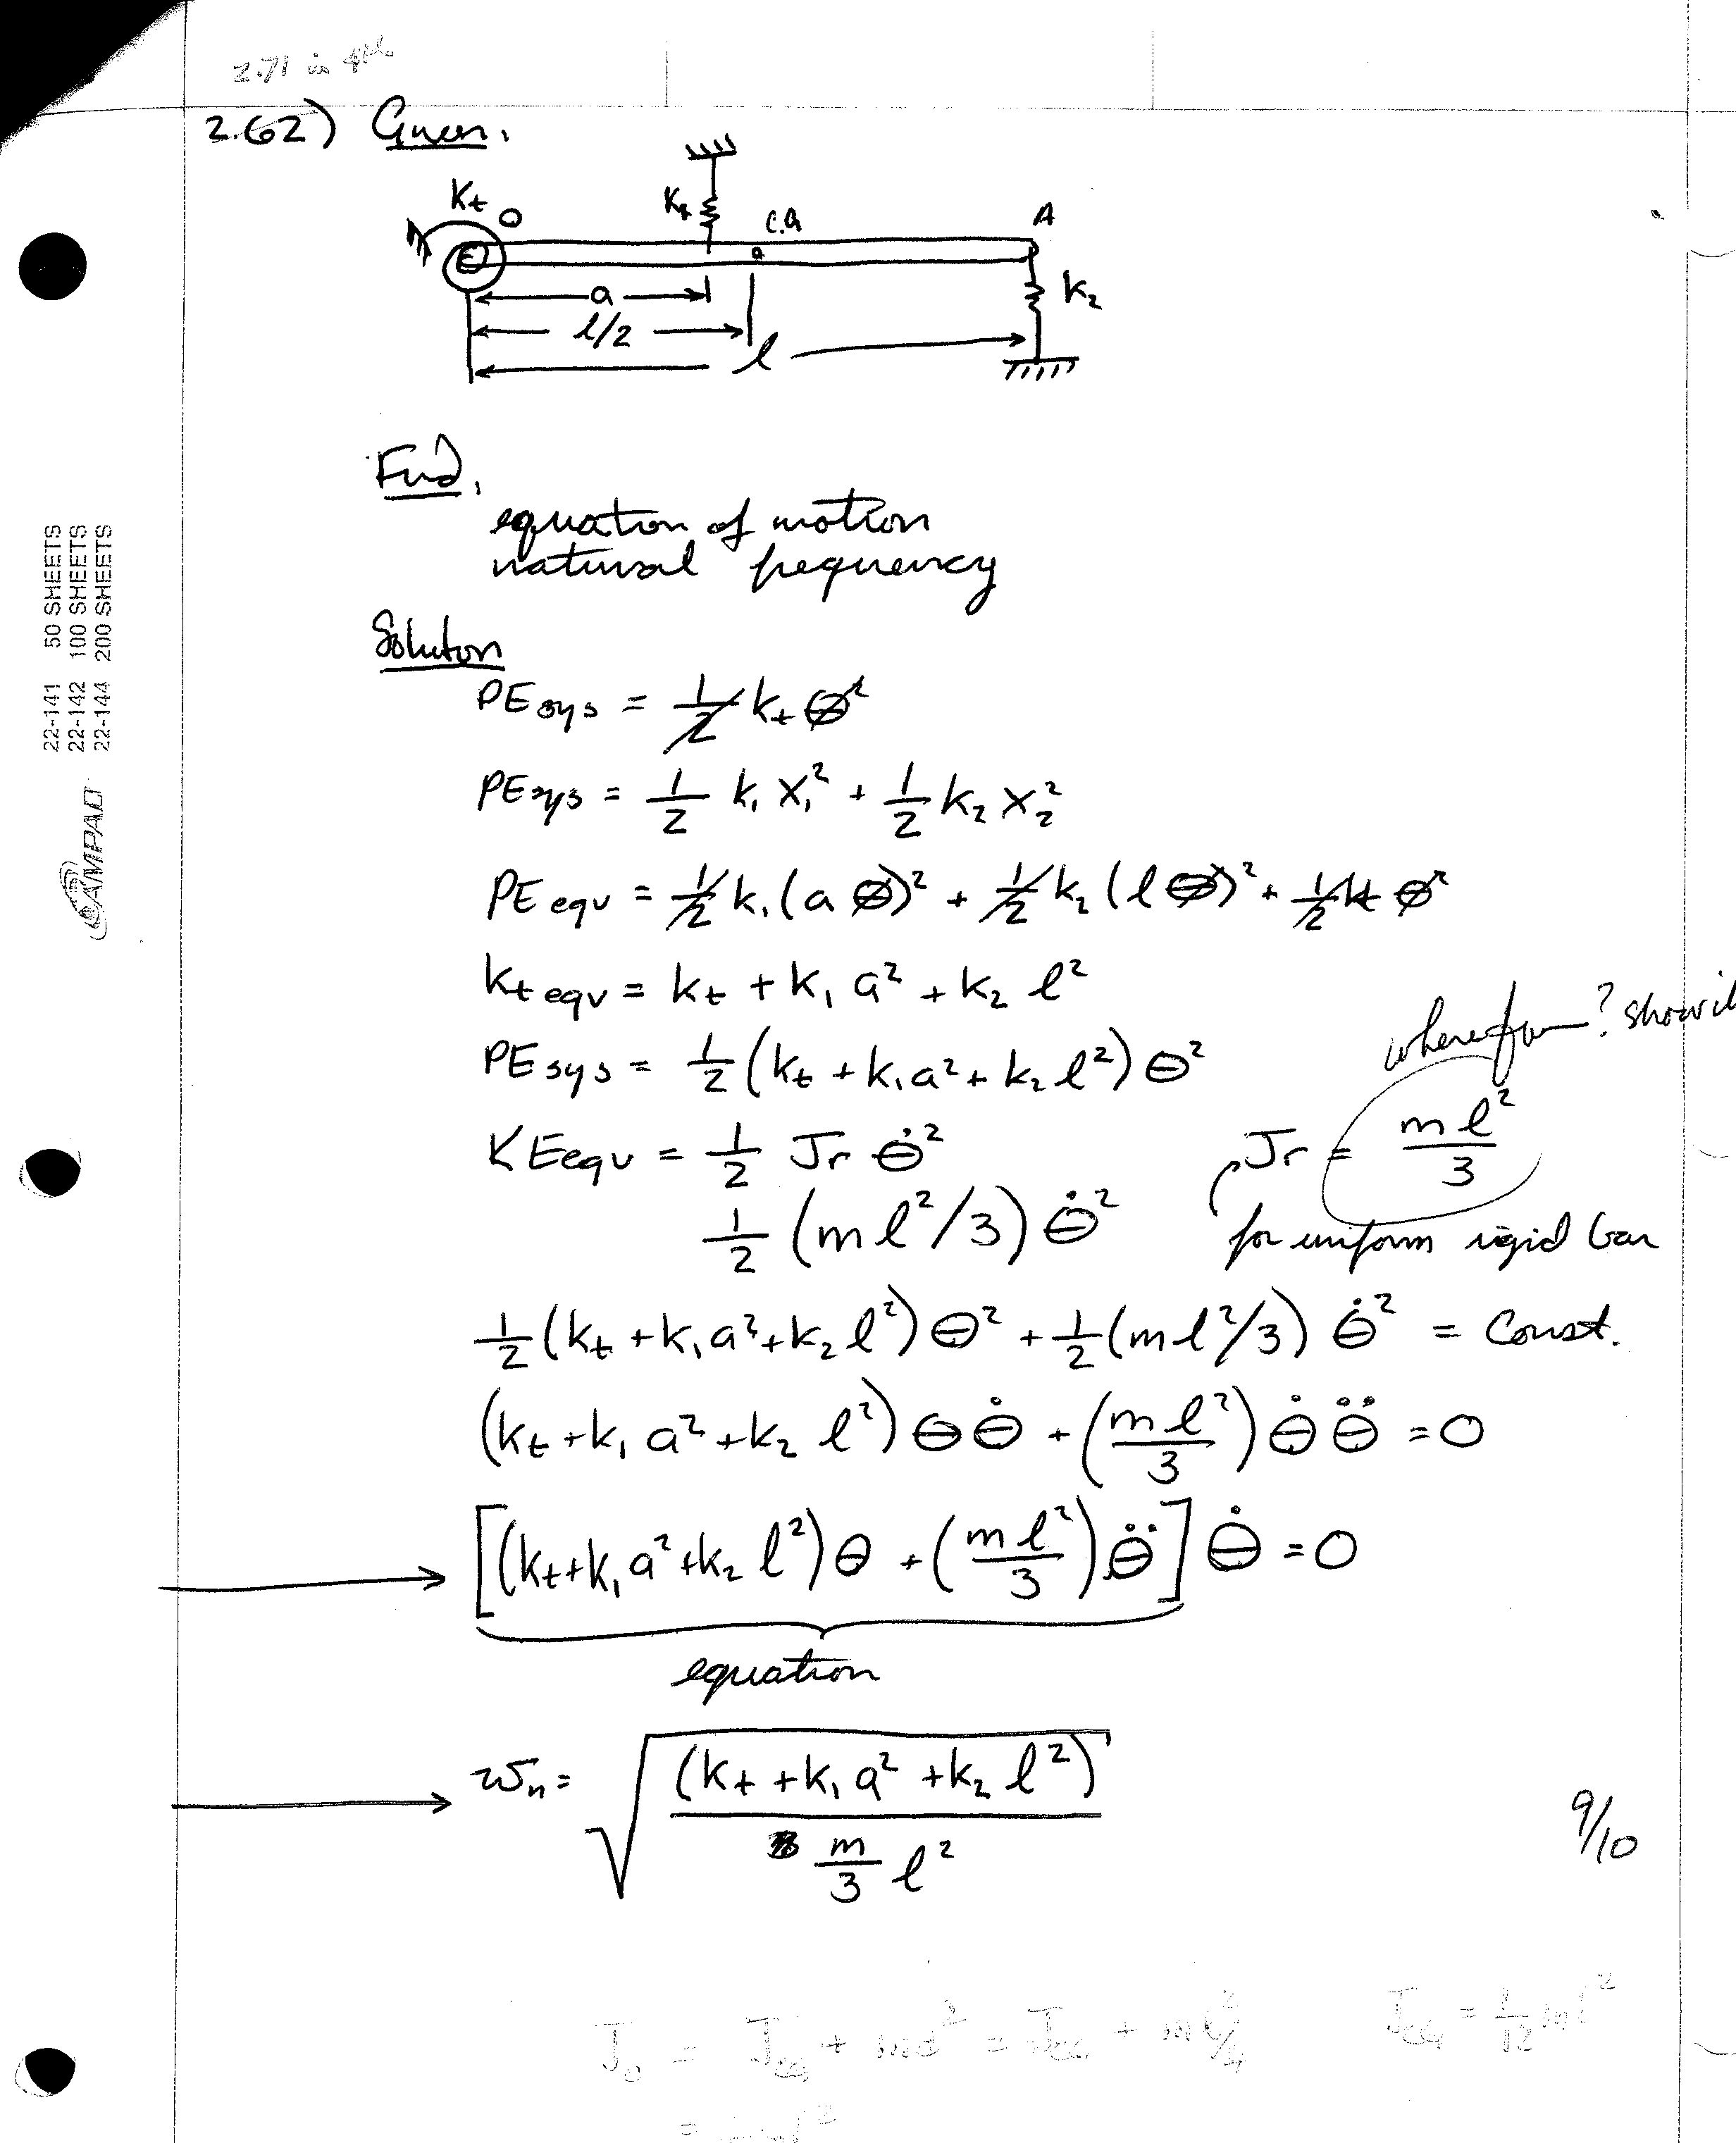 2.71 in 4th
2.62) Given.
Kt O K1 C.G A
k2
a
l/2
l
Find.
equation of motion
natural frequency
Soluton
PE sys = 1/2 kt θ²
PE sys = 1/2 k1 x1² + 1/2 k2 x2²
PE eqv = 1/2 k1 (a θ)² + 1/2 k2 (l θ)² + 1/2 kt θ²
kt eqv = kt + k1 a² + k2 l²
where from? show it
PE sys = 1/2 (kt + k1 a² + k2 l²) θ²
KE eqv = 1/2 Jr θ̇² Jr = ml²/3
1/2 (ml²/3) θ̇² for uniform rigid bar
1/2 (kt + k1 a² + k2 l²) θ² + 1/2 (ml²/3) θ̇² = Const.
(kt + k1 a² + k2 l²) θ θ̇ + (ml²/3) θ̇ θ̈ = 0
[(kt + k1 a² + k2 l²) θ + (ml²/3) θ̈] θ̇ = 0
equation
ωn = √((kt + k1 a² + k2 l²) / (m/3 l²))
9/10
J0 = JCG + md² = JCG + m l²/4 JCG = 1/12 ml²
22-141 50 SHEETS
22-142 100 SHEETS
22-144 200 SHEETS
AMPAD